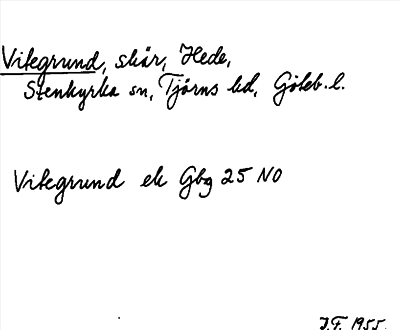 Vitegrund, skär, Hede,
Stenkyrka sn, Tjörns hd, Göteb. l.
Vitegrund ek Gbg 25 NO
J.F. 1955.